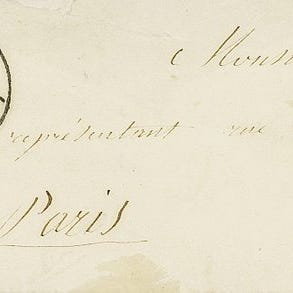 Mons
représentant rue
Paris